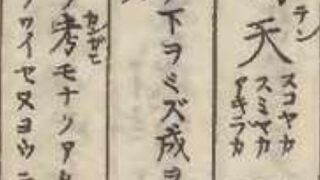 テン
天
スコヤカ
スミヤカ
アキラカ
下ヲミズ成ヲ
カンガヒ
考モナソタ
ワイセヌヨウニ